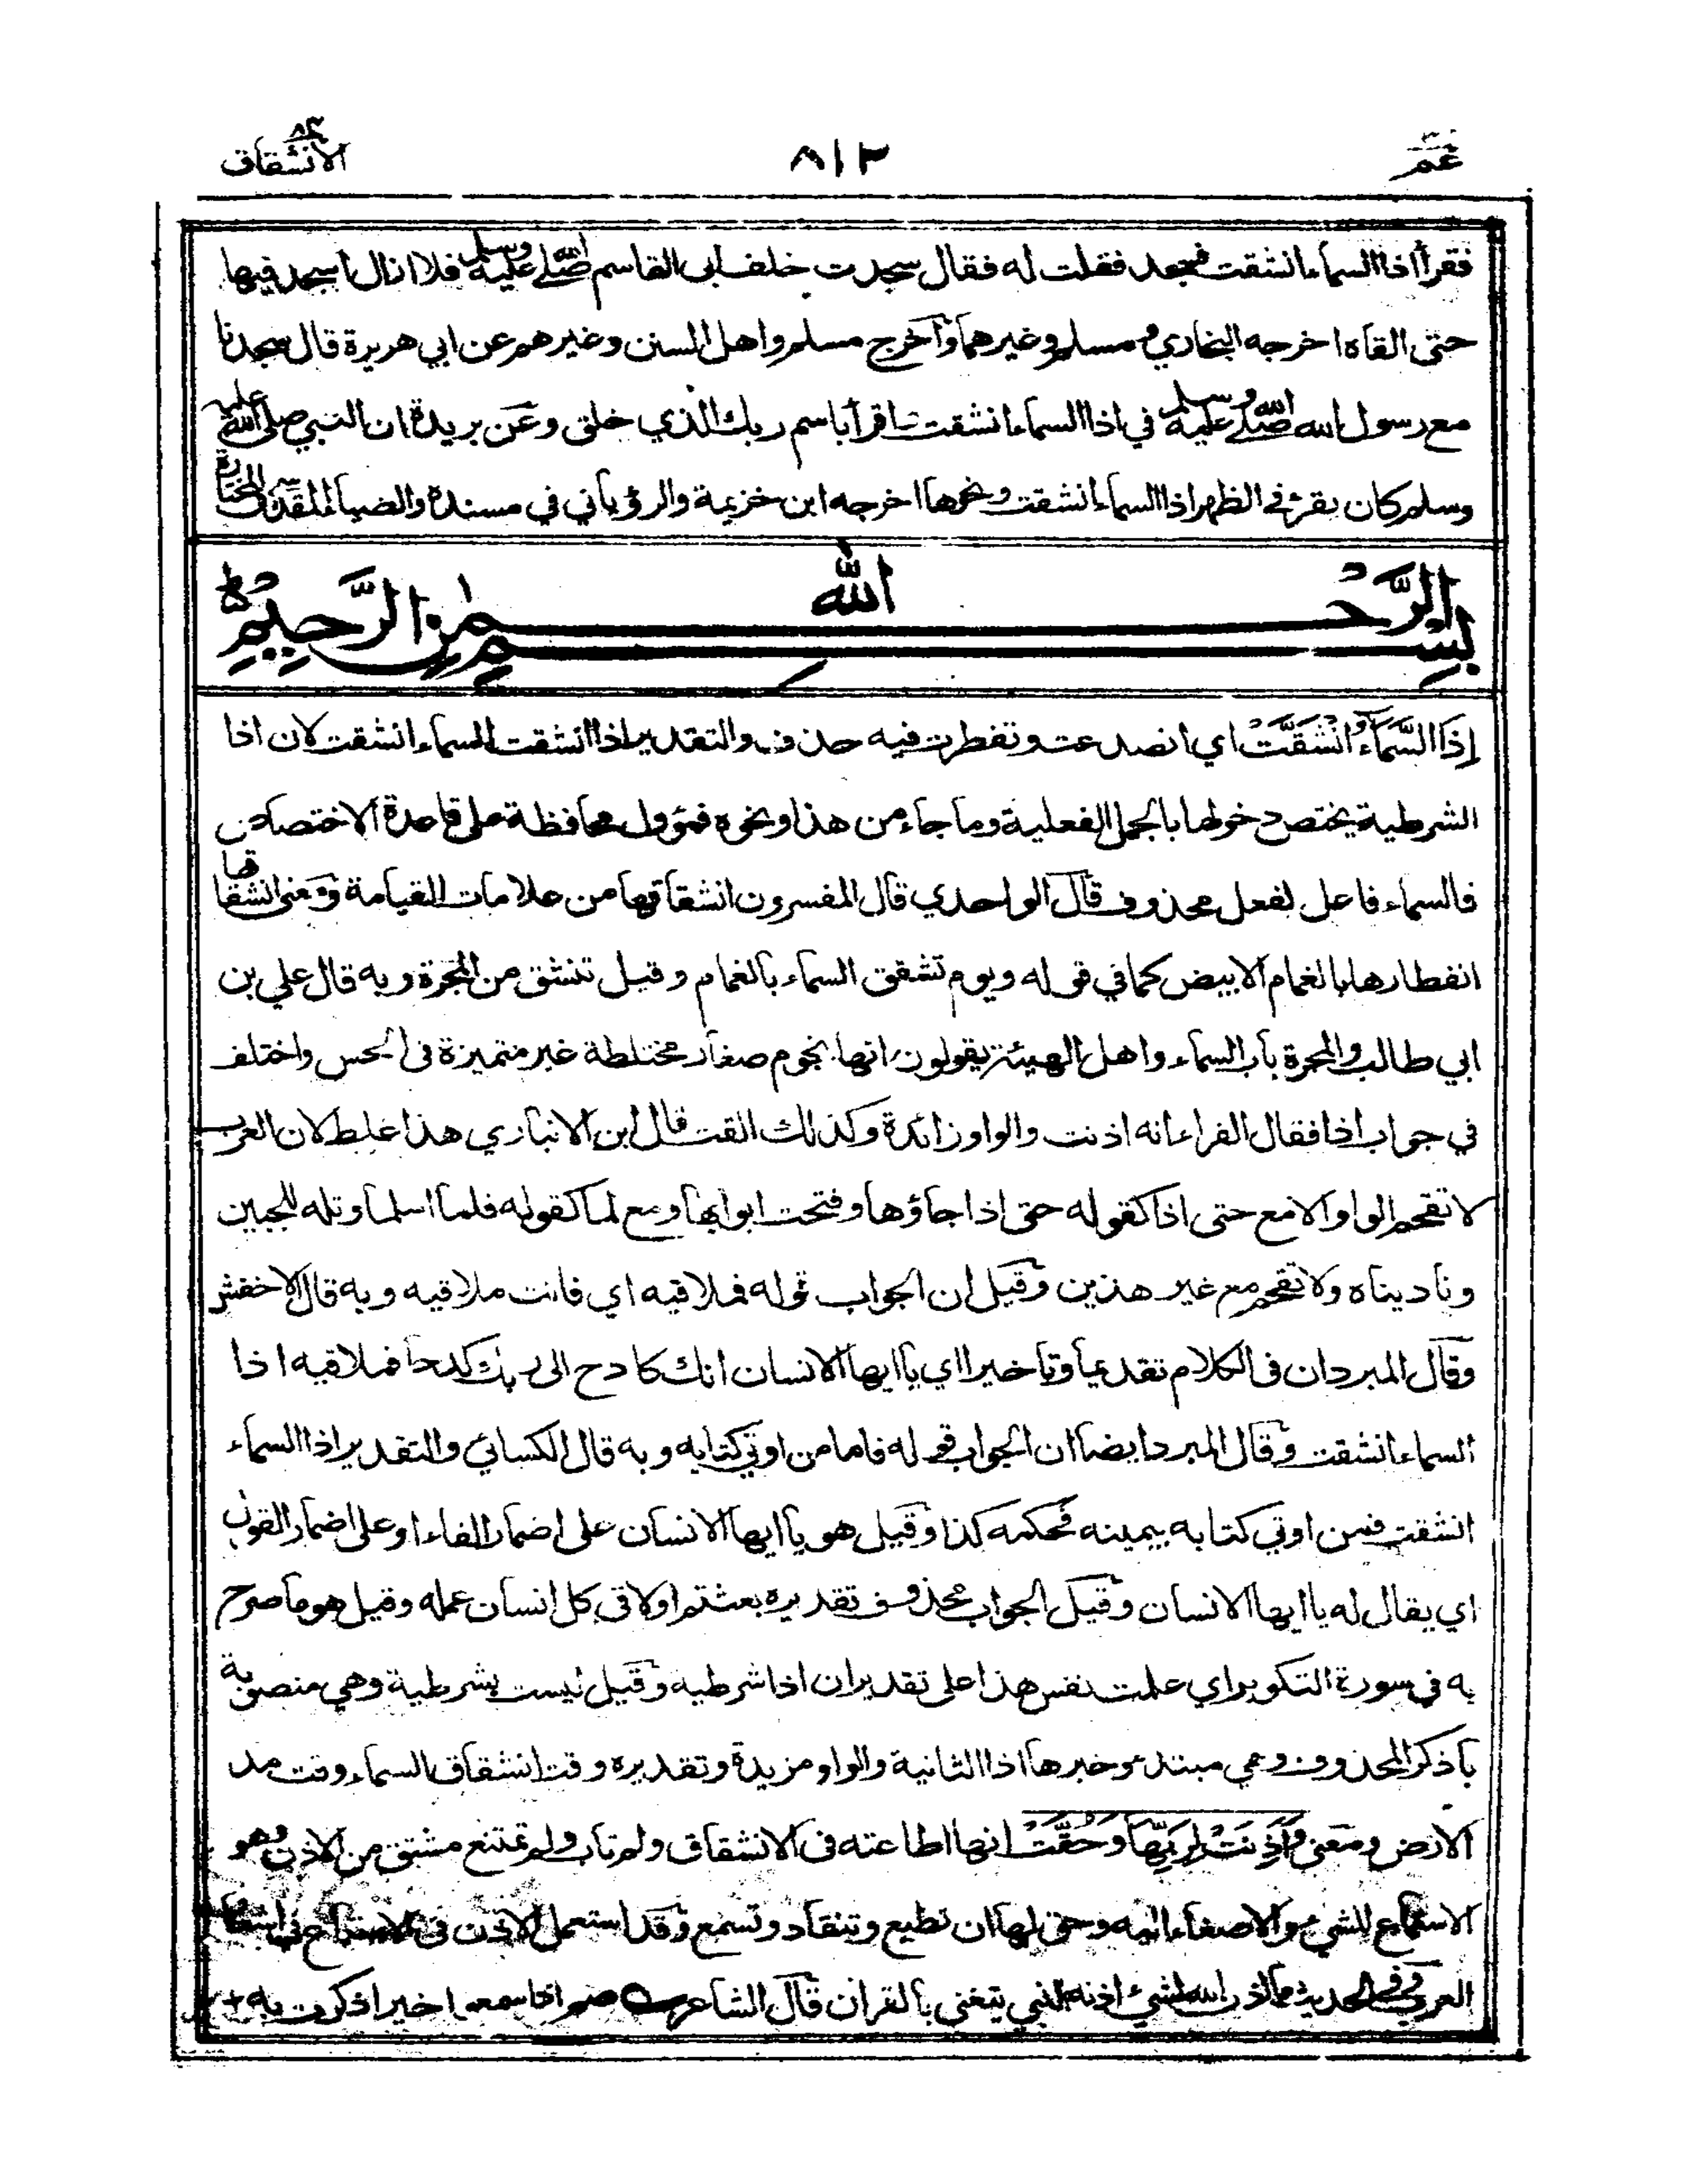 عم ٨١٢ الانشقاق ٨٤
فقرأ اذا السماء انشقت فسجد فقلت له فقال سجدت خلف ابي القاسم صلى الله عليه وسلم فلا ازال اسجد فيها
حتى القاه اخرجه البخاري ومسلم وغيرهما وأخرج مسلم واهل السنن وغيرهم عن ابي هريرة قال سجدنا
مع رسول الله صلى الله عليه وسلم في اذا السماء انشقت واقرأ باسم ربك الذي خلق وعن بريدة ان النبي صلى الله عليه
وسلم كان يقرأ في الظهر اذا السماء انشقت ونحوها اخرجه ابن خزيمة والرؤياني في مسنده والضياء المقدسي في المختارة
بسم الله الرحمن الرحيم
إِذَا السَّمَاءُ انْشَقَّتْ اي انصدعت وتفطرت فيه حذف والتقدير اذا انشقت السماء انشقت لان اذا
الشرطية يختص دخولها بالجمل الفعلية وما جاء من هذا ونحوه فمؤول محافظة على قاعدة الاختصاص
فالسماء فاعل لفعل محذوف قال الواحدي قال المفسرون انشقاقها من علامات القيامة ومعنى انشقاقها
انفطارها بالغمام الابيض كما في قوله ويوم تشقق السماء بالغمام وقيل تنشق من المجرة وبه قال علي بن
ابي طالب والمجرة باب السماء واهل الهيئة يقولون انها نجوم صغار مختلطة غير متميزة في الحس واختلف
في جواب اذا فقال الفراء انه اذنت والواو زائدة وكذلك القت قال ابن الانباري هذا غلط لان العرب
لا تقحم الواو الا مع حتى اذا كقوله حتى اذا جاؤها وفتحت ابوابها ومع لما كقوله فلما اسلما وتله للجبين
وناديناه ولا تقحم مع غير هذين وقيل ان الجواب قوله فملاقيه اي فانت ملاقيه وبه قال الاخفش
وقال المبرد ان في الكلام تقديما وتاخيرا اي يا ايها الانسان انك كادح الى ربك كدحا فملاقيه اذا
السماء انشقت وقال المبرد ايضا ان الجواب قوله فاما من اوتي كتابه وبه قال الكسائي والتقدير اذا السماء
انشقت فمن اوتي كتابه بيمينه فحكمه كذا وقيل هو يا ايها الانسان على اضمار الفاء او على اضمار القول
اي يقال له يا ايها الانسان وقيل الجواب محذوف تقديره بعثتم او لاقى كل انسان عمله وقيل هو ما صرح
به في سورة التكوير اي علمت نفس هذا على تقدير ان اذا شرطيه وقيل ليست بشرطية وهي منصوبة
باذكر المحذوف وهي مبتدء وخبرها اذا الثانية والواو مزيدة وتقديره وقت انشقاق السماء وقت مد
الارض ومعنى وَأَذِنَتْ لِرَبِّهَا وَحُقَّتْ انها اطاعته في الانشقاق ولم تاب ولم تمتنع مشتق من الاذن وهو
الاستماع للشيء والاصغاء اليه وحق لها ان تطيع وتنقاد وتسمع وقد استعمل الاذن في الاستماع في اشعار
العرب وفي الحديث ما اذن الله لشيء اذنه لنبي يتغنى بالقران قال الشاعر صم اذا سمعوا خيرا ذكرت به